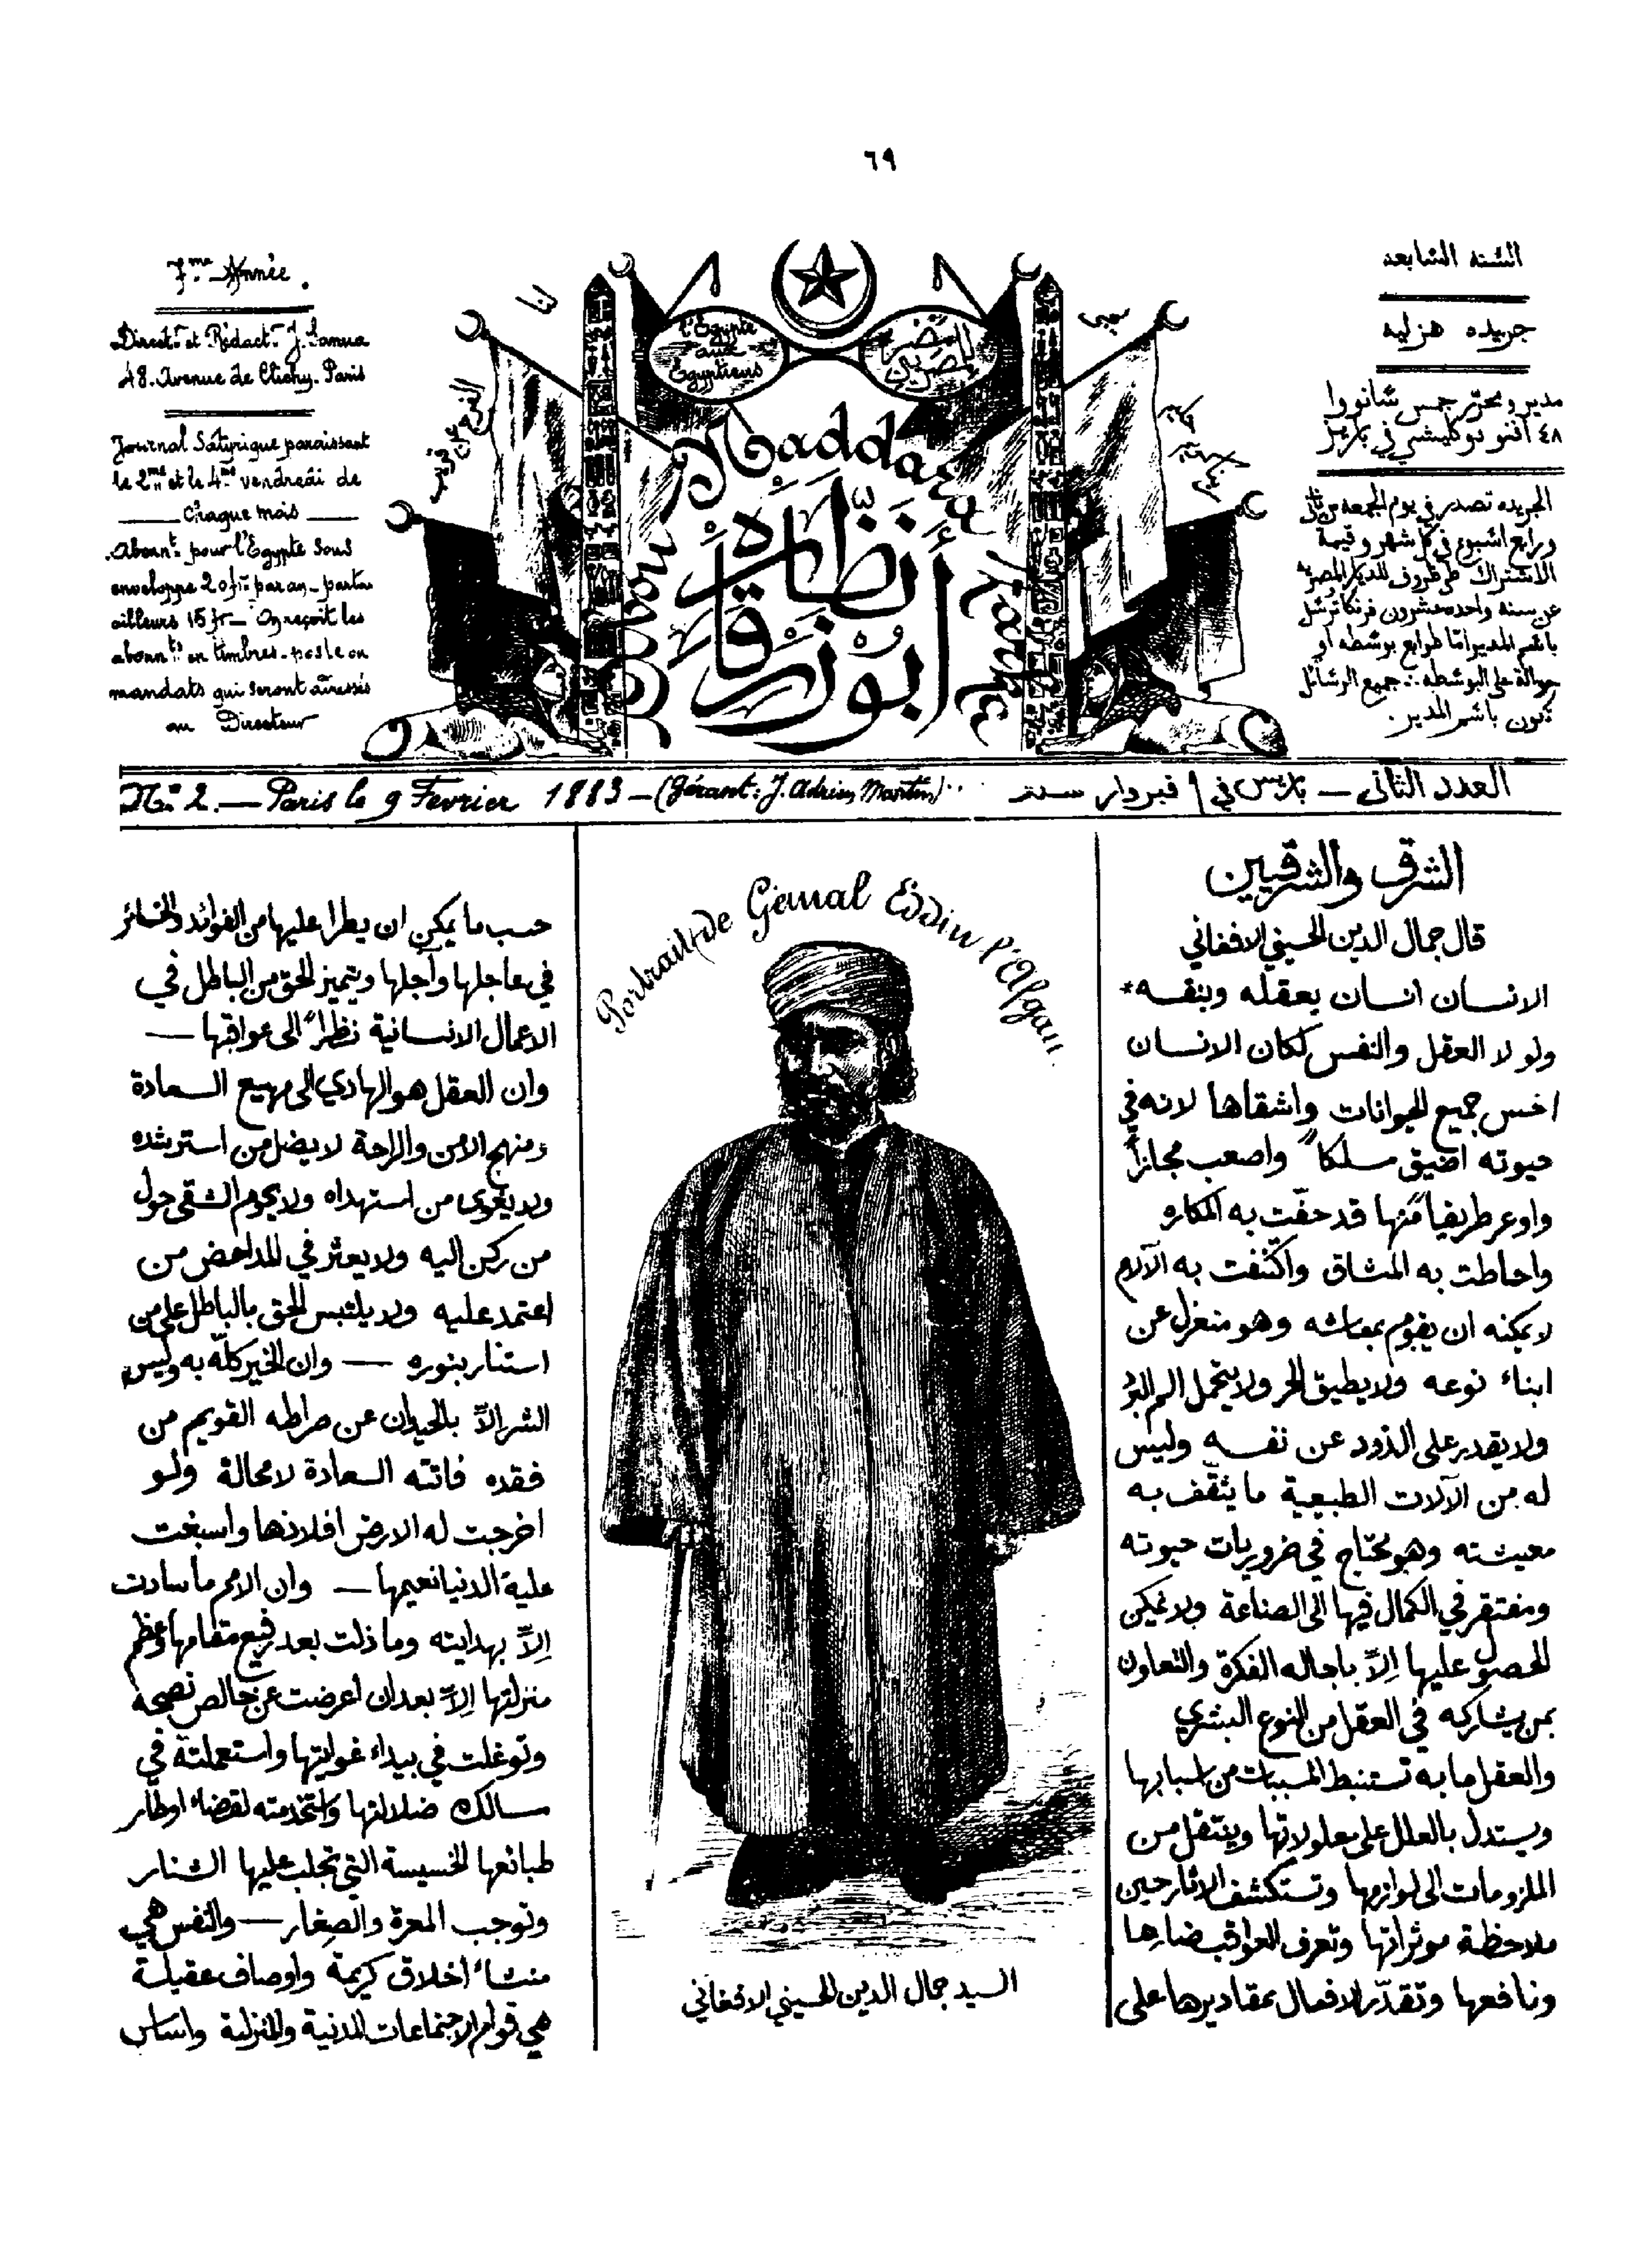 ٦٩
السنه السابعه
جريده هزليه
مدير ومحرر جمس سانووا
٤٨ افنو دوكليشي في باريز
الجريده تصدر في يوم الجمعه من ثاني
ورابع اسبوع في كل شهر وقيمة
الاشتراك ظرفروف للديار المصريه
عن سنه واحده عشرون فرنكا ترسل
باسم المدير اما طوابع بوسطه او
حوالة على البوسطه ∴ جميع الرسائل
تكون باسم المدير.
l'Egypte
aux
Egyptiens
مصر
للمصريين
Abou Naddara Zarka
أبو نظّارة
زرقا
7.me Année.
Direct.r et Rédact.r J. Sanua
48. Avenue de Clichy. Paris
Journal Satyrique paraissant
le 2.me et le 4.me vendredi de
chaque mois
Abonn.t pour l'Egypte sous
enveloppe 20 fr. par an - partout
ailleurs 15 fr - On reçoit les
abonn.ts en timbres-poste ou
mandats qui seront adressés
au Directeur
No. 2. — Paris le 9 Fevrier 1883 — (Gérant: J. Adrien Martin)
العدد الثاني — باريس في ٩ فبردار سنة
الشرق والشرقيين
قال جمال الدين الحسيني الافغاني
الانسان انسان بعقله وبنفسه*
ولو لا العقل والنفس لكان الانسان
اخس جميع الحيوانات واشقاها لانه في
حيوته اضيق مسلكاً واصعب مجازاً
واوعر طريقا منها قد حفّت به المكاره
واحاطت به المشاق واكتنفت به الآلام
لا يمكنه ان يقوم بمعاشه وهو منعزل عن
ابناء نوعه ولا يطيق الحر ولا يتحمل الم البرد
ولا يقدر على الذود عن نفسه وليس
له من الآلات الطبيعية ما يثقف به
معيشته وهو محتاج في ضروريات حيوته
ومفتقر في الكمال فيها الى الصناعة ولا يمكن
الحصول عليها إلاّ باجاله الفكرة والتعاون
بمن يشاركه في العقل من النوع البشري
والعقل ما به تستنبط المسببات من اسبابها
ويستدل بالعلل على معلولاتها وينتقل من
الملزومات الى لوازمها وتستكشف الاثار حين
ملاحظة موثراتها وتعرف العواقب ضارها
ونافعها وتقدّر الافعال بمقاديرها على
Portrait de Gémal Eddin l'Afgan.
السيد جمال الدين الحسيني الافغاني
حسب ما يمكن ان يطرا عليها من الفوائد والخسائر
في عاجلها وآجلها ويتميز الحق من الباطل في
الاعمال الانسانية نظراً الى عواقبها —
وان العقل هو الهادي الى مهيع السعادة
ومنهج الامن والراحة لا يضل من استرشده
ولا يغوى من استهداه ولا يحوم الشقى حول
من ركن اليه ولا يعثر في المداحض من
اعتمد عليه ولا يلتبس الحق بالباطل على من
استنار بنوره — وان الخير كلّه به وليس
الشر إلاّ بالحيدان عن صراطه القويم من
فقده فاتته السعادة لا محالة ولو
اخرجت له الارض افلاذها واسبغت
عليه الدنيا نعيمها — وان الامم ما سادت
إلاّ بهدايته وما ذلت بعد رفيع مقامها وعظم
منزلتها إلاّ بعد ان اعرضت عن خالص نصحه
وتوغلت في بيداء غوايتها واستعملته في
مسالك ضلالتها واستخدمته لقضاء اوطار
طبائعها الخسيسة التي تجلب عليها الشنار
وتوجب المعرة والصغار — والنفس هي
منشاء اخلاق كريمة واوصاف عقيلة
هي قوام الاجتماعات المدنية والمنزلية واساس